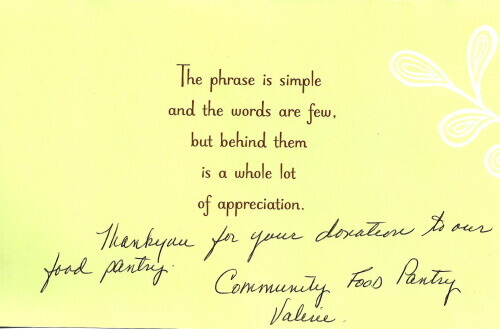 The phrase is simple
and the words are few,
but behind them
is a whole lot
of appreciation.
Thankyou for your donation to our
food pantry.
Community Food Pantry
Valerie.